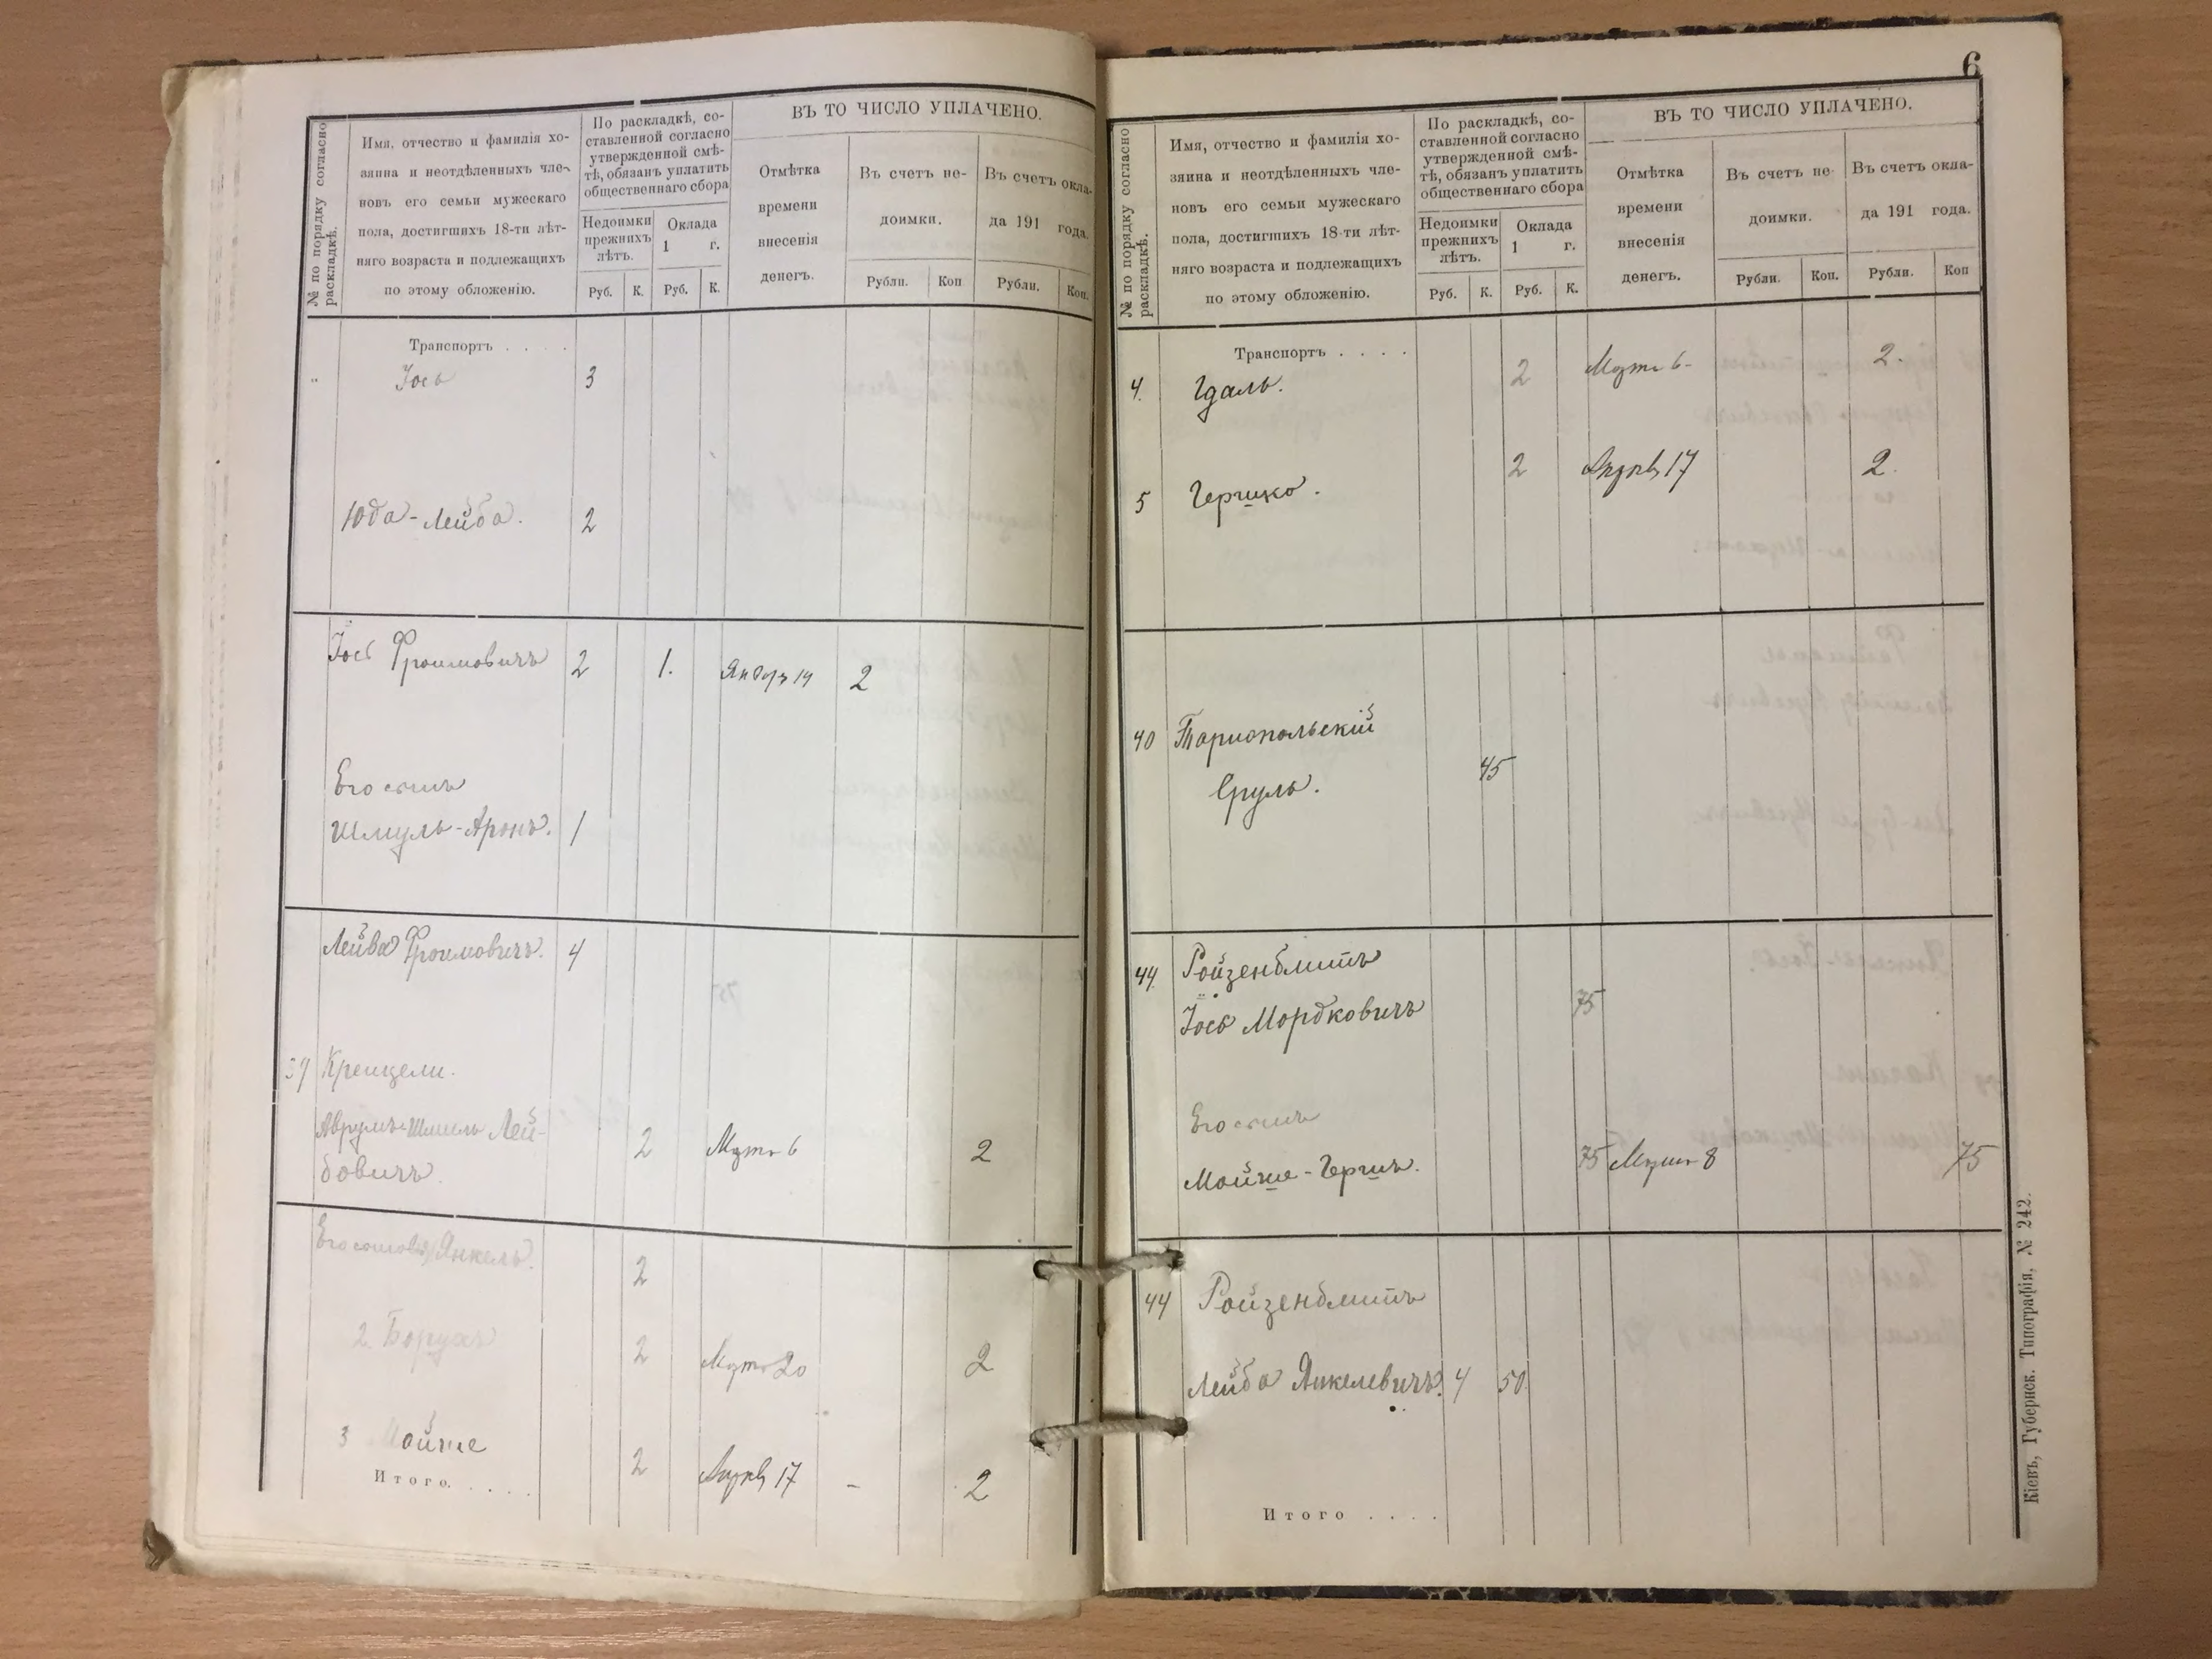 № по порядку согласно раскладкѣ.
Имя, отчество и фамилія хо-
зяина и неотдѣленныхъ чле-
новъ его семьи мужескаго
пола, достигшихъ 18-ти лѣт-
няго возраста и подлежащихъ
по этому обложенію.
По раскладкѣ, со-
ставленной согласно
утвержденной смѣ-
тѣ, обязанъ уплатить
общественнаго сбора
Недоимки
прежнихъ
лѣтъ.
Оклада
1 г.
Руб. К. Руб. К.
ВЪ ТО ЧИСЛО УПЛАЧЕНО.
Отмѣтка
времени
внесенія
денегъ.
Въ счетъ не-
доимки.
Въ счетъ окла-
да 191 года.
Рубли. Коп Рубли. Коп.
Транспортъ . . . .
Іось 3
Юда-Лейба. 2
Іось Фроимовичъ 2 1. Январ 14 2
Его сынъ
Шмуль-Аронъ. 1
Лейба Фроимовичъ. 4
39 Кренцели.
Аврумъ-Шмиль Лей- 2 Марта 6 2
бовичъ.
Его сыновья Янкель. 2
2 Борухъ 2 Марта 20 2
3 Мойше
2 Апрѣл 17 - 2
Итого. . . . .
6
№ по порядку согласно раскладкѣ.
Имя, отчество и фамилія хо-
зяина и неотдѣленныхъ чле-
новъ его семьи мужескаго
пола, достигшихъ 18-ти лѣт-
няго возраста и подлежащихъ
по этому обложенію.
По раскладкѣ, со-
ставленной согласно
утвержденной смѣ-
тѣ, обязанъ уплатить
общественнаго сбора
Недоимки
прежнихъ
лѣтъ.
Оклада
1 г.
Руб. К. Руб. К.
ВЪ ТО ЧИСЛО УПЛАЧЕНО.
Отмѣтка
времени
внесенія
денегъ.
Въ счетъ не-
доимки.
Въ счетъ окла-
да 191 года.
Рубли. Коп. Рубли. Коп
Транспортъ . . . .
4. Гдаль. 2 Марта 6- 2.
5 Гершко. 2 Апрѣл 17 2.
40 Тарнопольскій
Сруль. 45
44. Ройзенблитъ
Іось Мордковичъ 75
Его сынъ
Мойше-Гершъ. 75 Марта 8 75
44 Ройзенблитъ
Лейба Янкелевичъ. 4 50.
Итого . . . .
Кіевъ, Губернск. Типографія, № 242.